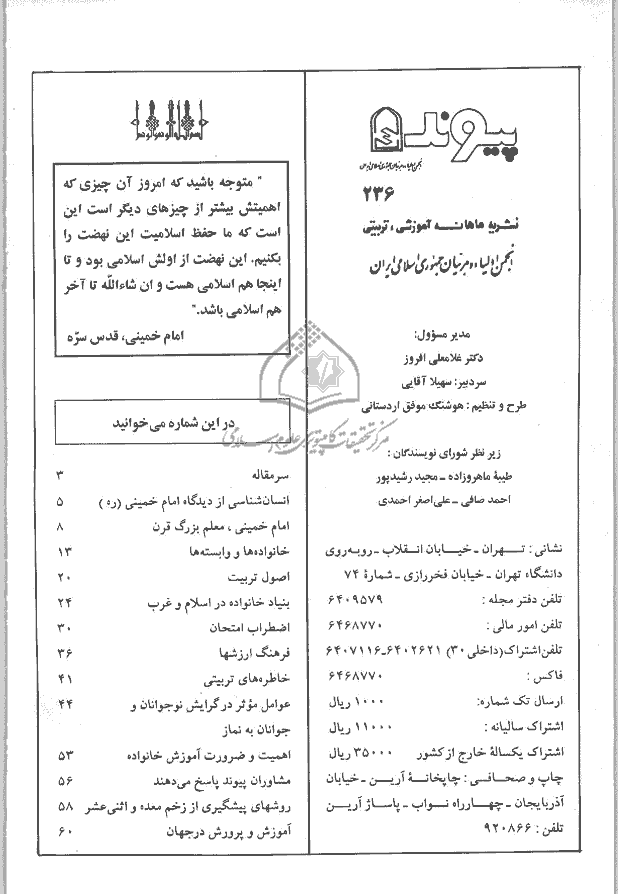 پیوند
انجمن اولیاء و مربیان جمهوری اسلامی ایران
۲۳۶
نشریه ماهانه آموزشی، تربیتی
انجمن اولیاء و مربیان جمهوری اسلامی ایران
مدیر مسؤول:
دکتر غلامعلی افروز
سردبیر: سهیلا آقایی
طرح و تنظیم: هوشنگ موفق اردستانی
زیر نظر شورای نویسندگان:
طیبۀ ماهروزاده ـ مجید رشیدپور
احمد صافی ـ علی‌اصغر احمدی
نشانی: تـهـران ـ خـیـابان انـقـلاب ـ روبـه‌روی
دانشگاه تهران ـ خیابان فخررازی ـ شمارۀ ۷۴
تلفن دفتر مجله: ۶۴۰۹۵۷۹
تلفن امور مالی: ۶۴۶۸۷۷۰
تلفن‌اشتراک(داخلی۳۰) ۶۴۰۲۶۲۱ـ۶۴۰۷۱۱۶
فاکس: ۶۴۶۸۷۷۰
ارسال تک شماره: ۱۰۰۰ ریال
اشتراک سالیانه: ۱۱۰۰۰ ریال
اشتراک یکسالۀ خارج از کشور ۳۵۰۰۰ ریال
چاپ و صحـافـی: چاپخانۀ آریـن ـ خیابان
آذربایجان ـ چهـارراه نـواب ـ پاسـاژ آریـن
تلفن: ۹۲۰۸۶۶
بسم الله الرحمن الرحیم
" متوجه باشید که امروز آن چیزی که
اهمیتش بیشتر از چیزهای دیگر است این
است که ما حفظ اسلامیت این نهضت را
بکنیم. این نهضت از اولش اسلامی بود و تا
اینجا هم اسلامی هست و ان شاءاللّه تا آخر
هم اسلامی باشد."
امام خمینی، قدس سرّه
مرکز تحقیقات کامپیوتری علوم اسلامی
در این شماره می‌خوانید
سرمقاله ۳
انسان‌شناسی از دیدگاه امام خمینی (ره) ۵
امام خمینی، معلم بزرگ قرن ۸
خانواده‌ها و وابسته‌ها ۱۳
اصول تربیت ۲۰
بنیاد خانواده در اسلام و غرب ۲۴
اضطراب امتحان ۳۰
فرهنگ ارزشها ۳۶
خاطره‌های تربیتی ۴۱
عوامل مؤثر در گرایش نوجوانان و ۴۴
جوانان به نماز
اهمیت و ضرورت آموزش خانواده ۵۳
مشاوران پیوند پاسخ می‌دهند ۵۶
روشهای پیشگیری از زخم معده و اثنی‌عشر ۵۸
آموزش و پرورش درجهان ۶۰